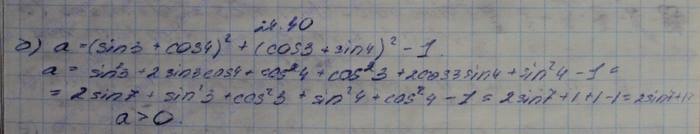 24.40
б) a = (sin3 + cos4)² + (cos3 + sin4)² - 1.
a = sin²3 + 2sin3cos4 + cos²4 + cos²3 + 2cos3sin4 + sin²4 - 1 =
= 2sin7 + sin²3 + cos²3 + sin²4 + cos²4 - 1 = 2sin7+1+1-1 = 2sin7+1>
a > 0.